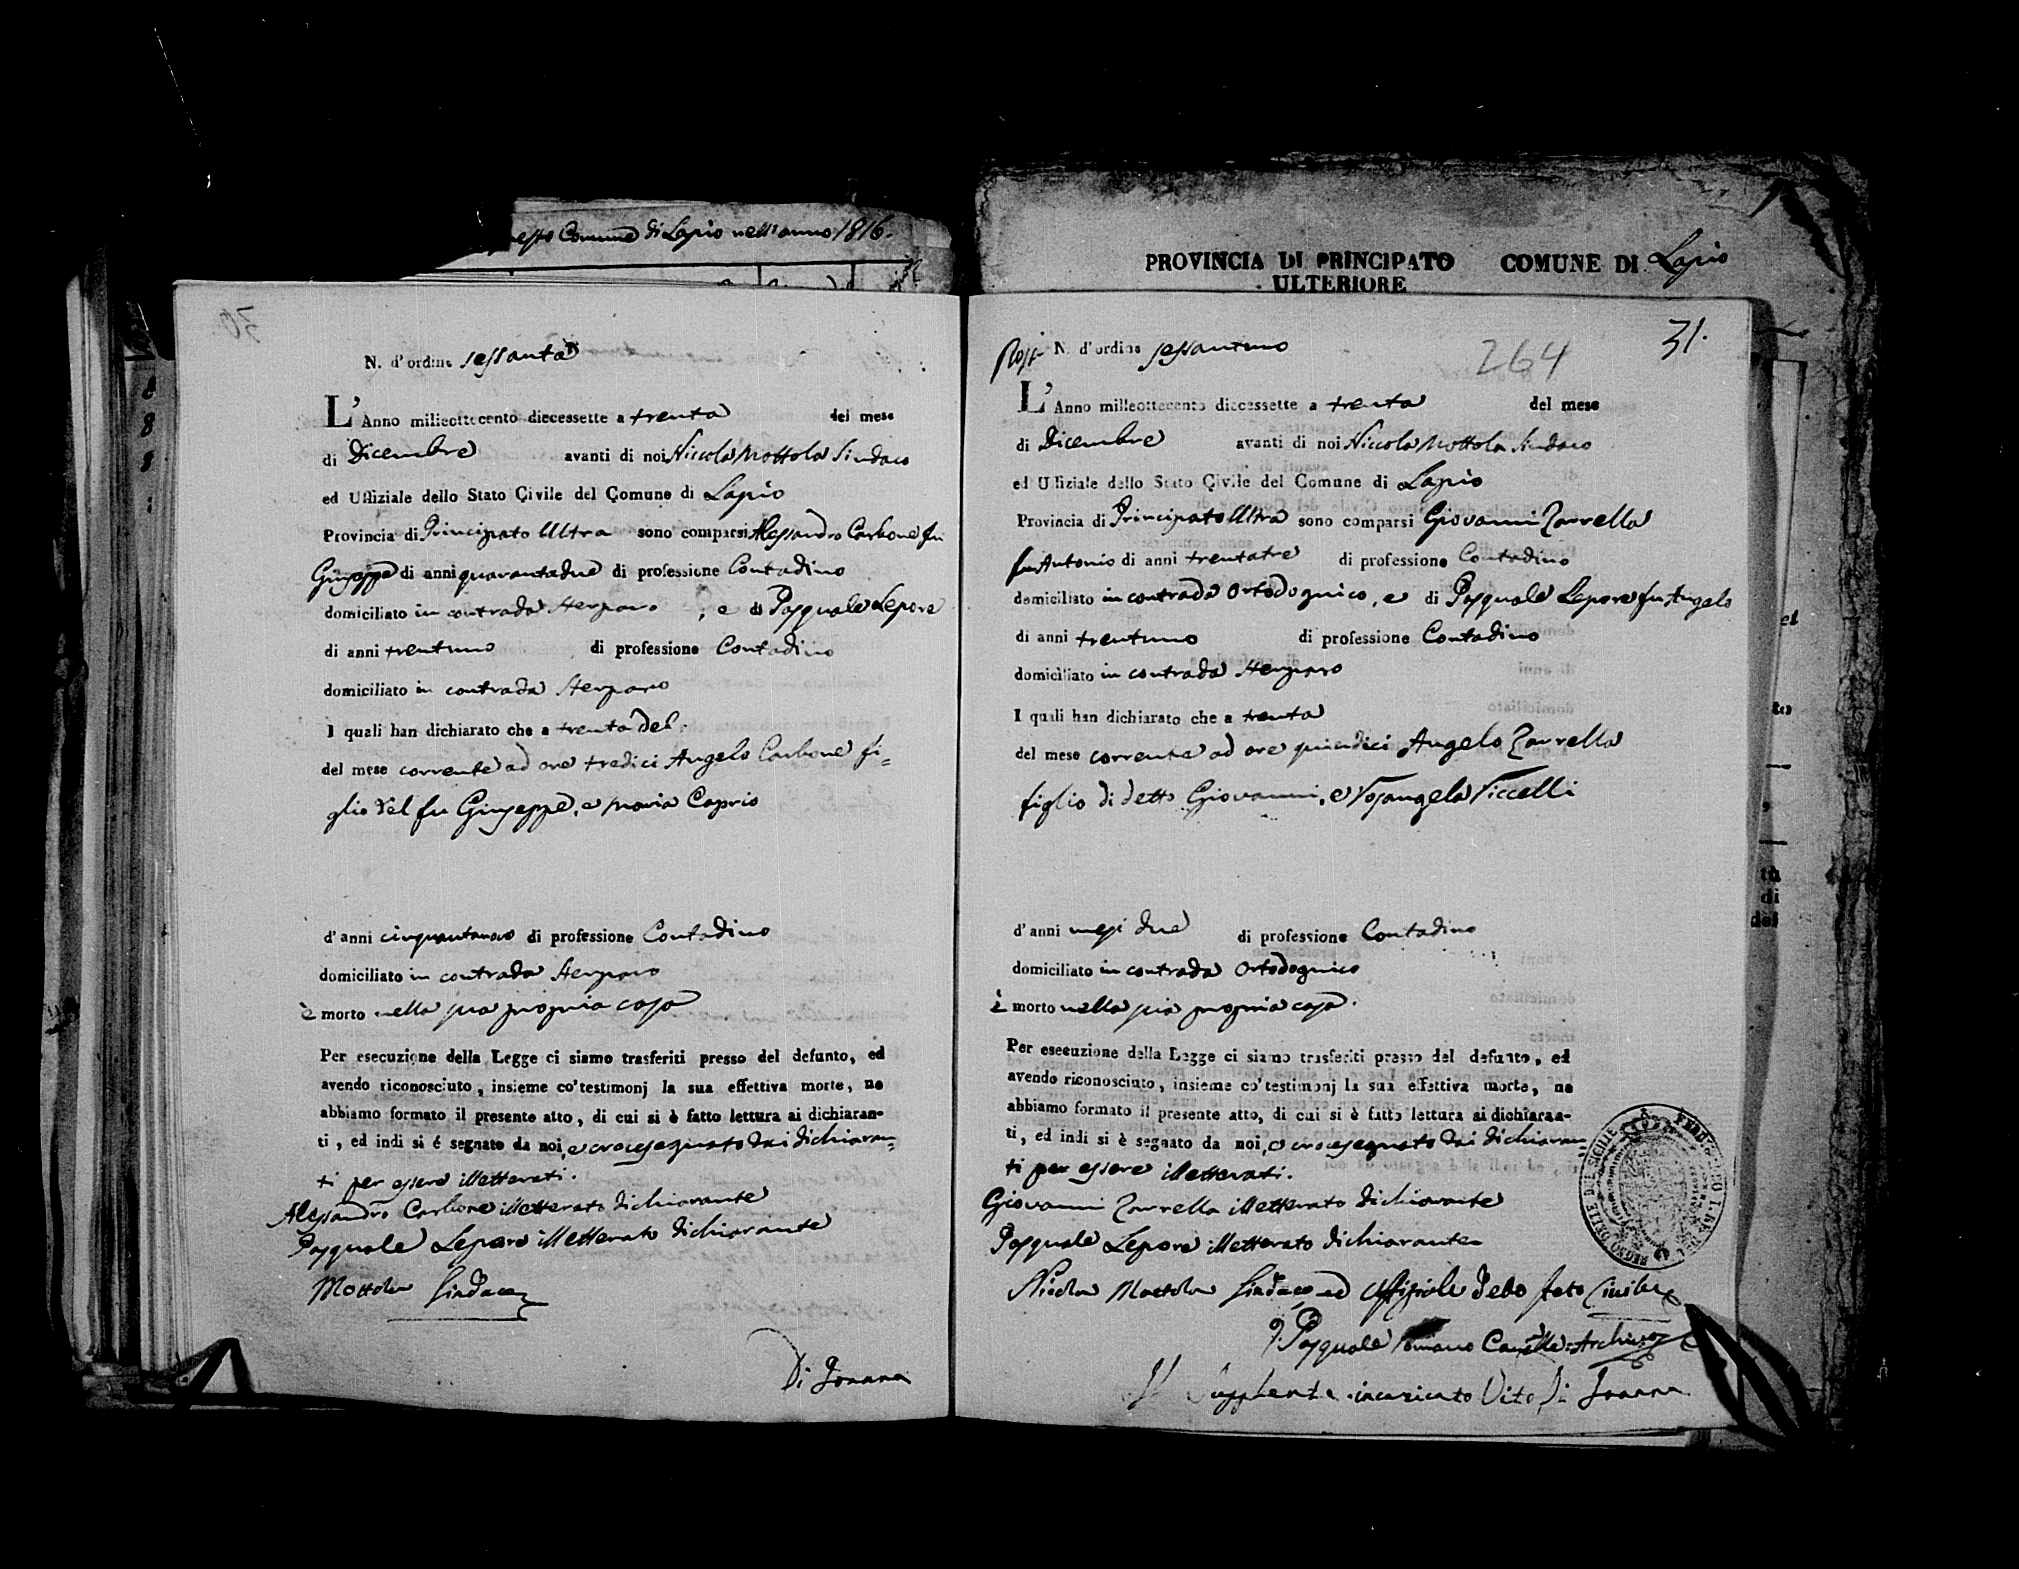 Comune di Lapio nell'anno 1816.
PROVINCIA DI PRINCIPATO COMUNE DI Lapio
ULTERIORE
30
N. d'ordine sessanta
L'Anno milleottocento diecessette a trenta del mese
di Dicembre avanti di noi Niccola Mottola Sindaco
ed Uffiziale dello Stato Civile del Comune di Lapio
Provincia di Principato Ultra sono comparsi Alessandro Carbone fu
Giuseppe di anni quarantadue di professione Contadino
domiciliato in contrada Herparo, e di Pasquale Lepore
di anni trentuno di professione Contadino
domiciliato in contrada Herparo
I quali han dichiarato che a trenta del
del mese corrente ad ore tredici Angelo Carbone fi=
glio del fu Giuseppe, e Maria Caprio
d'anni cinquantanove di professione Contadino
domiciliato in contrada Herparo
è morto nella sua propria casa
Per esecuzione della Legge ci siamo trasferiti presso del defunto, ed
avendo riconosciuto, insieme co'testimonj la sua effettiva morte, ne
abbiamo formato il presente atto, di cui si è fatto lettura ai dichiaran-
ti, ed indi si é segnato da noi, e crocesegnato dai dichiaran=
ti per essere illetterati.
Alessandro Carbone illetterato dichiarante
Pasquale Lepore illetterato dichiarante
Mottola Sindaco
Di Joanna
31.
264
N. d'ordine sessantuno
L'Anno milleottocento diecessette a trenta del mese
di Dicembre avanti di noi Niccola Mottola Sindaco
ed Uffiziale dello Stato Civile del Comune di Lapio
Provincia di Principato Ultra sono comparsi Giovanni Zarrella
fu Antonio di anni trentatre di professione Contadino
domiciliato in contrada Ortodognico, e di Pasquale Lepore fu Angelo
di anni trentuno di professione Contadino
domiciliato in contrada Herparo
I quali han dichiarato che a trenta
del mese corrente ad ore quindici Angelo Zarrella
figlio di detto Giovanni, e Rosangela Piccelli
d'anni mesi due di professione Contadino
domiciliato in contrada Ortodognico
è morto nella sua propria casa.
Per esecuzione della Legge ci siamo trasferiti presso del defunto, ed
avendo riconosciuto, insieme co'testimonj la sua effettiva morte, ne
abbiamo formato il presente atto, di cui si è fatto lettura ai dichiaran-
ti, ed indi si è segnato da noi, e crocesegnato dai dichiaran
ti per essere illetterati.
Giovanni Zarrella illetterato dichiarante
Pasquale Lepore illetterato dichiarante
Nicola Mottola Sindaco ed Uffiziale dello Stato Civile
Pasquale Romano Cancelle Archivo
Il Supplente incaricato Vito Di Joanna
REGNO DELLE DUE SICILIE